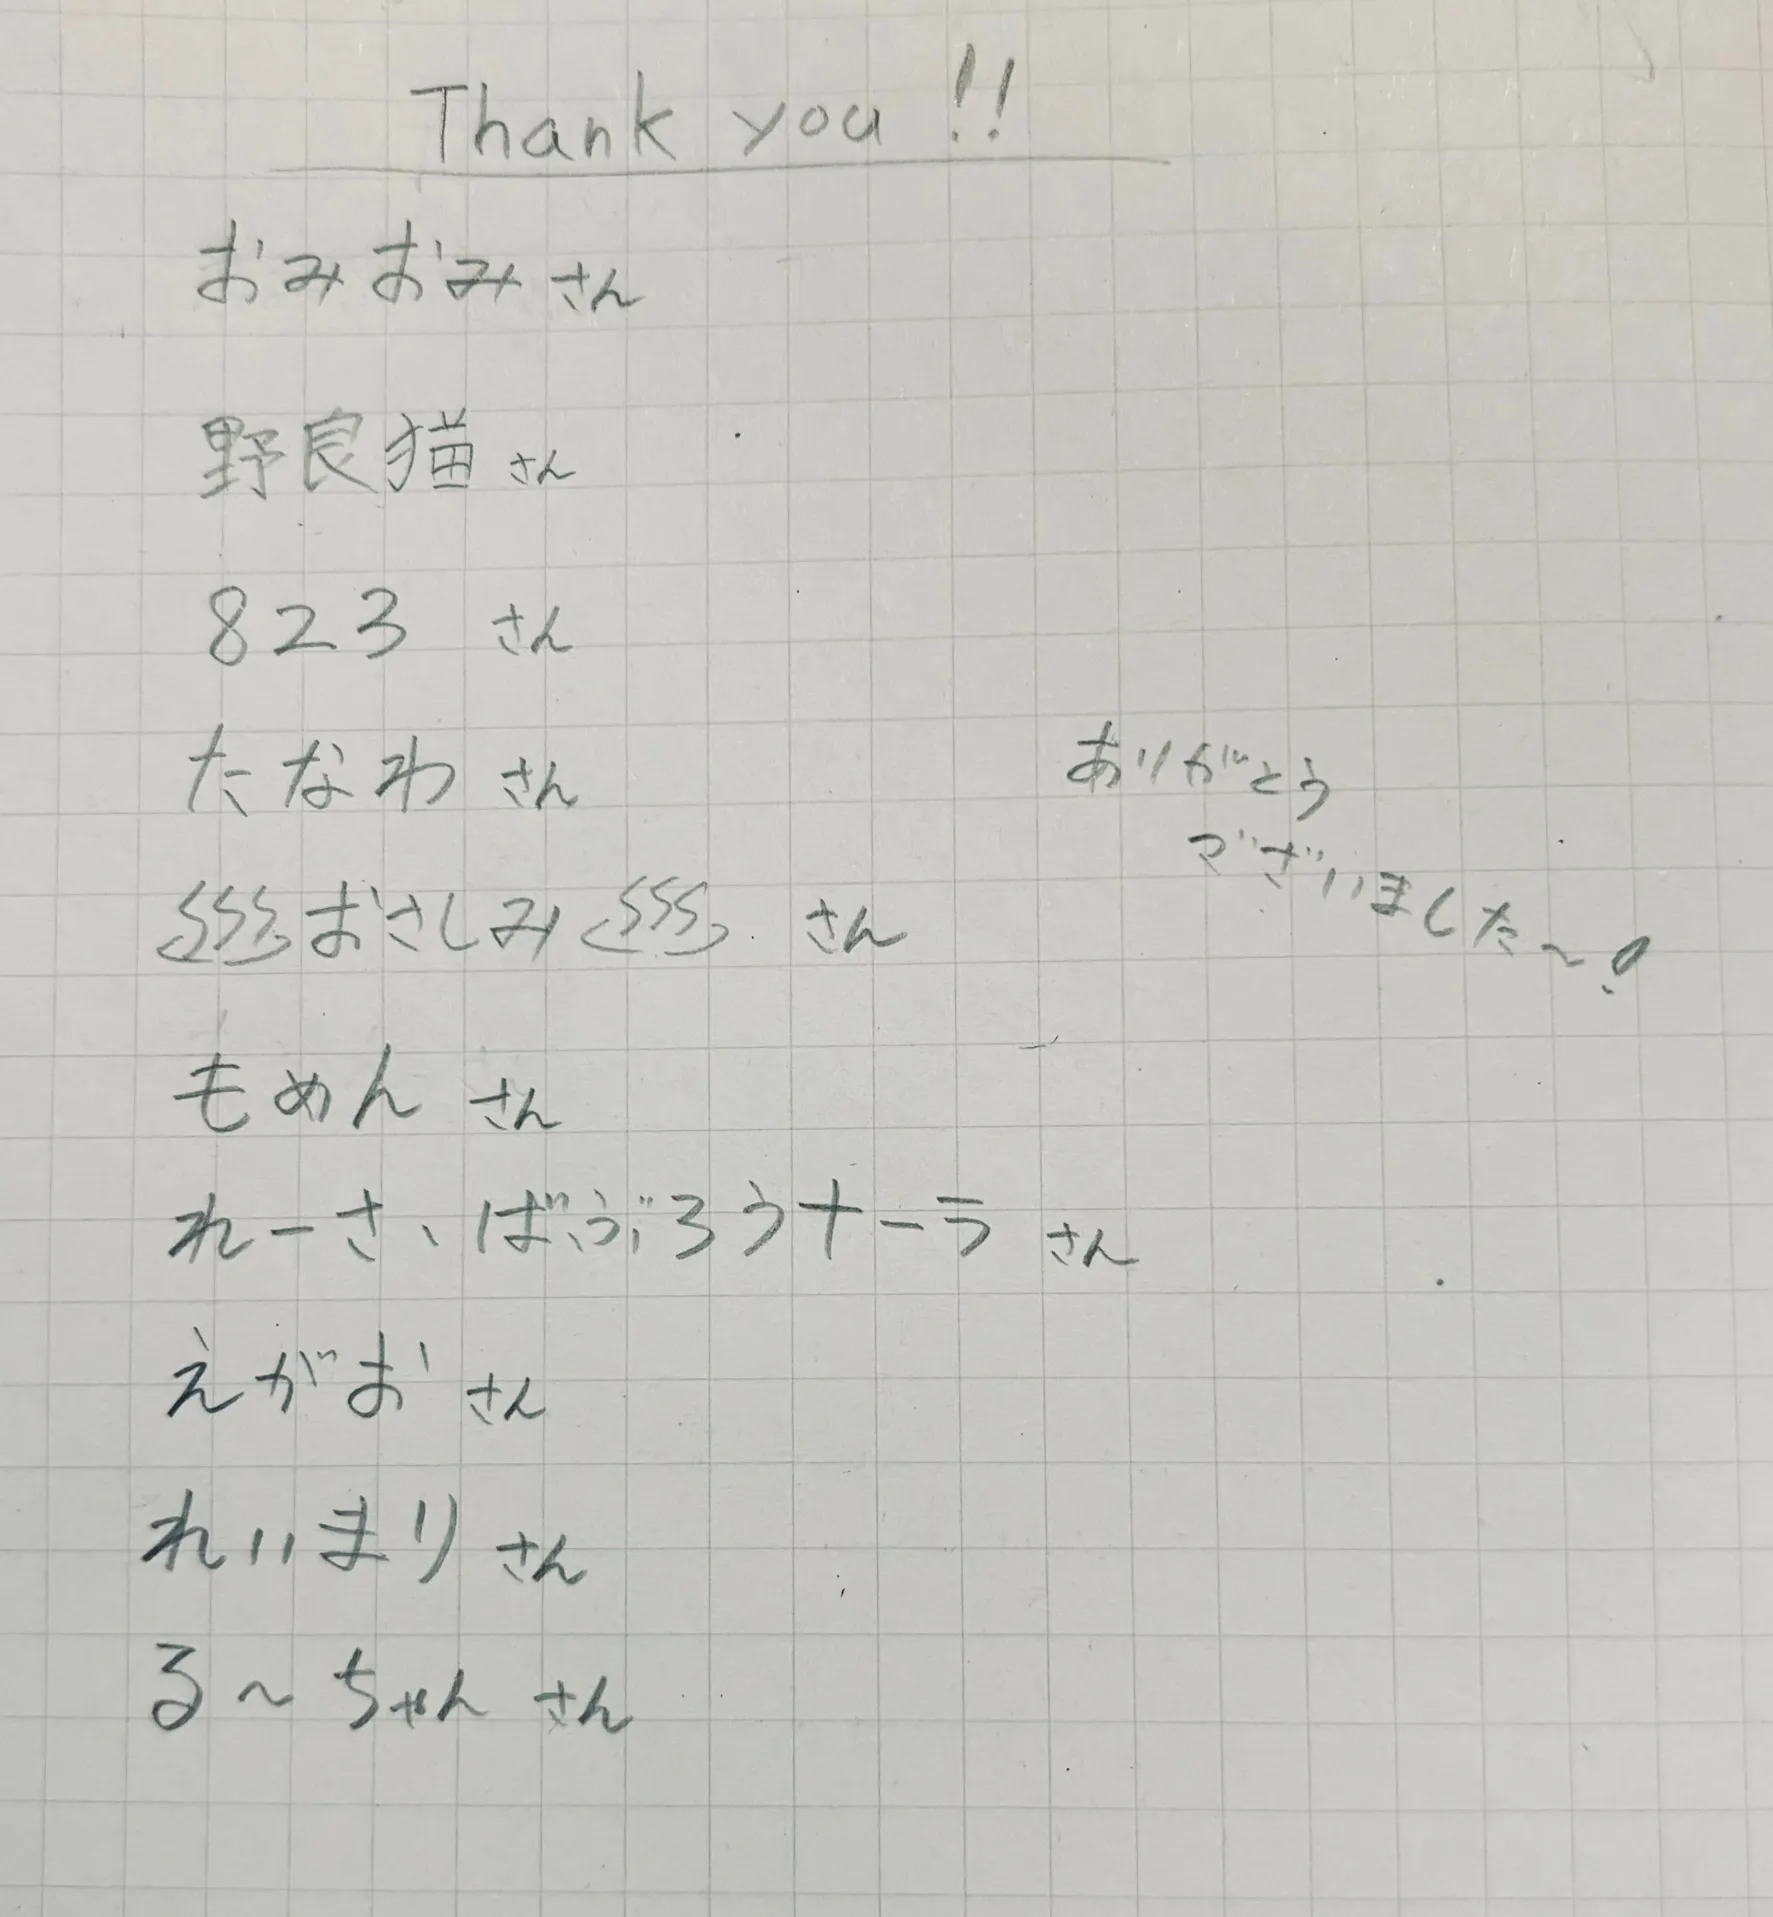 Thank you!!
おみおみさん
野良猫さん
823 さん
たなわさん
ありがとう
ございました〜!
♨おさしみ♨ さん
もめんさん
れーさ、ばぶろうナーラさん
えがおさん
れいまりさん
る〜ちゃんさん